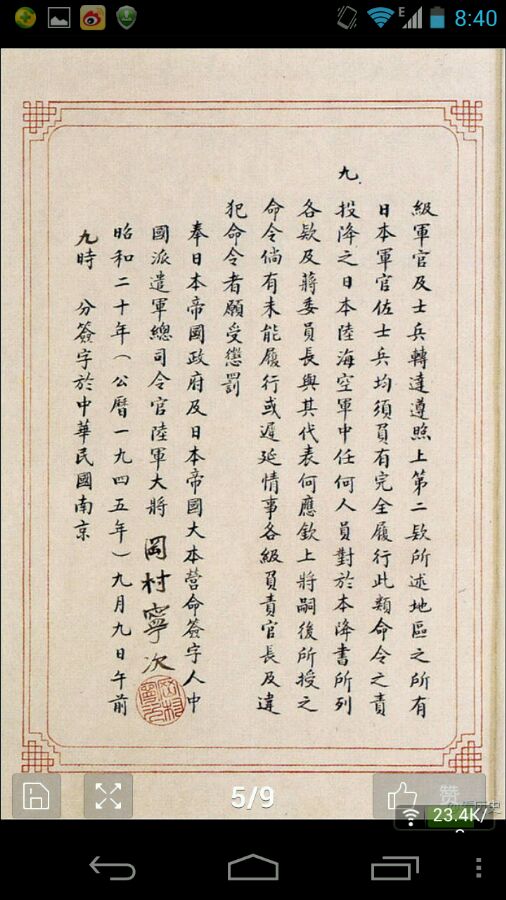 E
8:40
級軍官及士兵轉達遵照上第二欵所述地區之所有
日本軍官佐士兵均須負有完全履行此類命令之責
九.
投降之日本陸海空軍中任何人員對於本降書所列
各欵及蔣委員長與其代表何應欽上將嗣後所授之
命令倘有未能履行或遲延情事各級負責官長及違
犯命令者願受懲罰
奉日本帝國政府及日本帝國大本營命簽字人中
國派遣軍總司令官陸軍大將 岡村寧次
昭和二十年(公曆一九四五年)九月九日午前
九時 分簽字於中華民國南京
5/9
赞
23.4K/